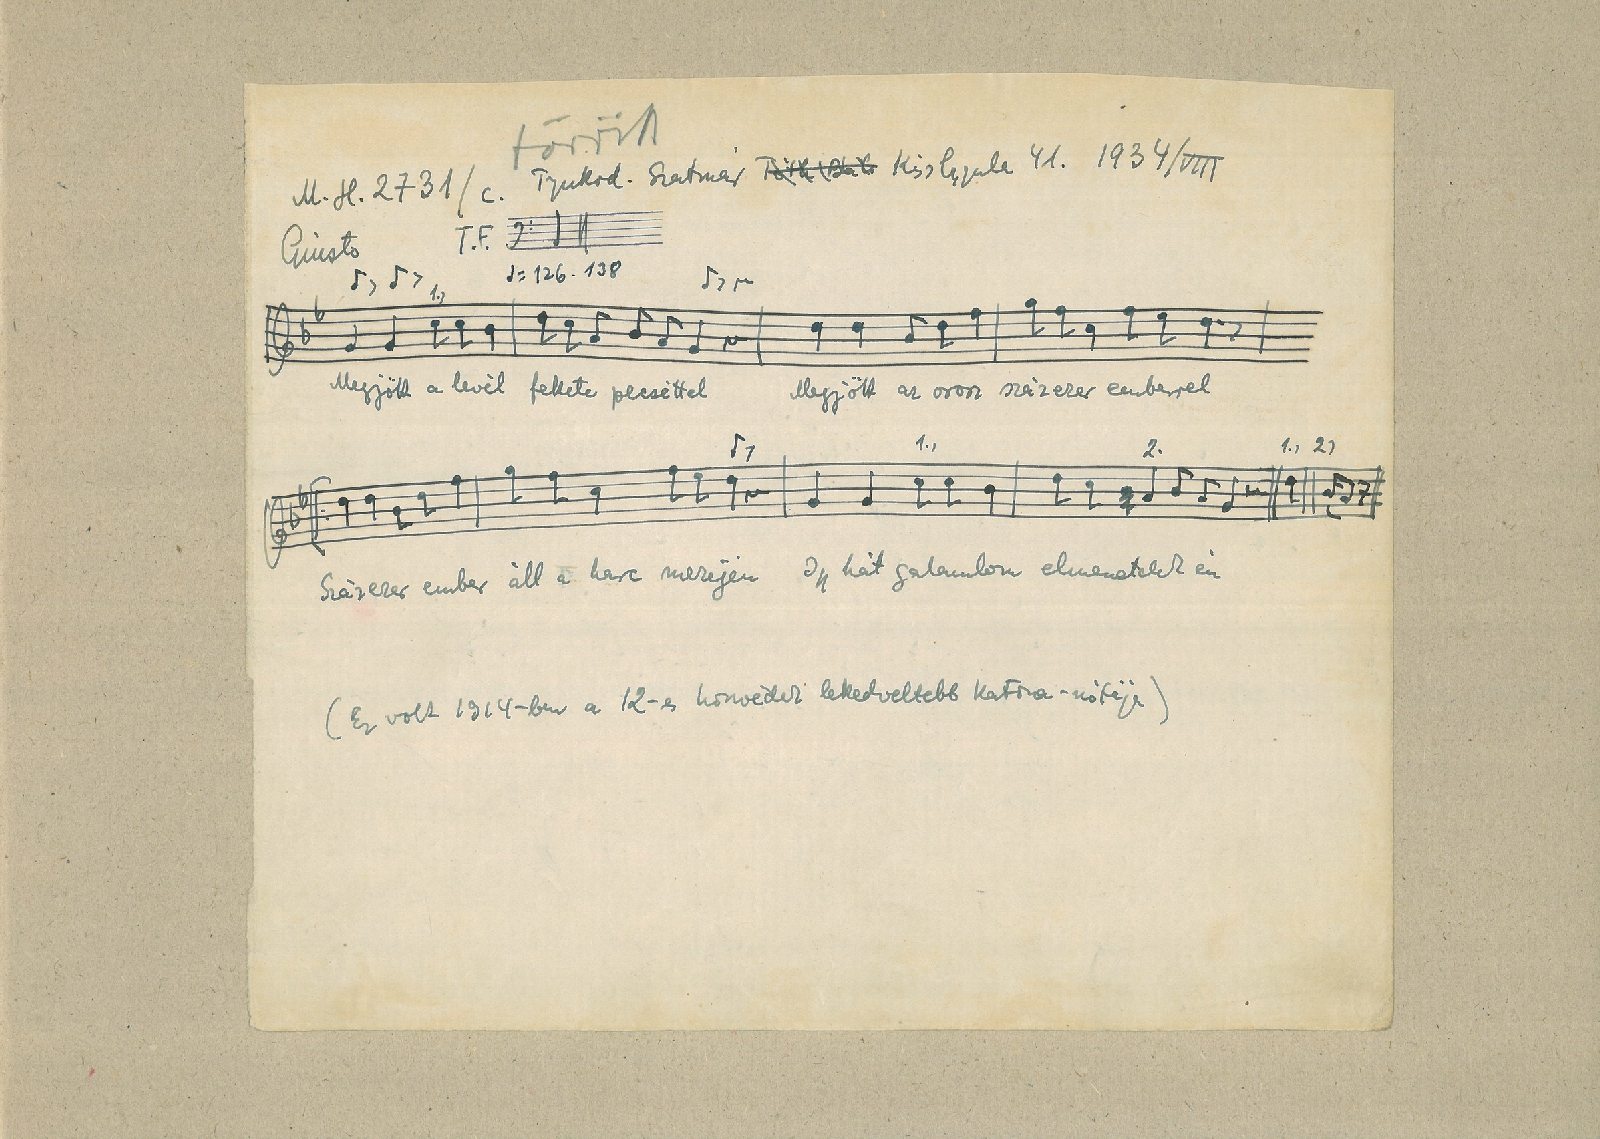 török
M. H. 2731/c. Tyukod. Szatmár Kiss Gyula 41. 1934/VIII
Giusto T.F.
♩= 126 - 138
1.,
Megjött a levél fekete pecséttel Megjött az orosz százezer emberrel
1., 2. 1., 2,
Százezer ember áll a harc mezején Így hát galambom elmenetelek én
(Ez volt 1914-ben a 12-es honvédek legkedveltebb katona-nótája)